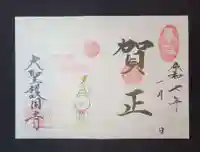 令和七年
一月 日
賀正
大聖護国寺